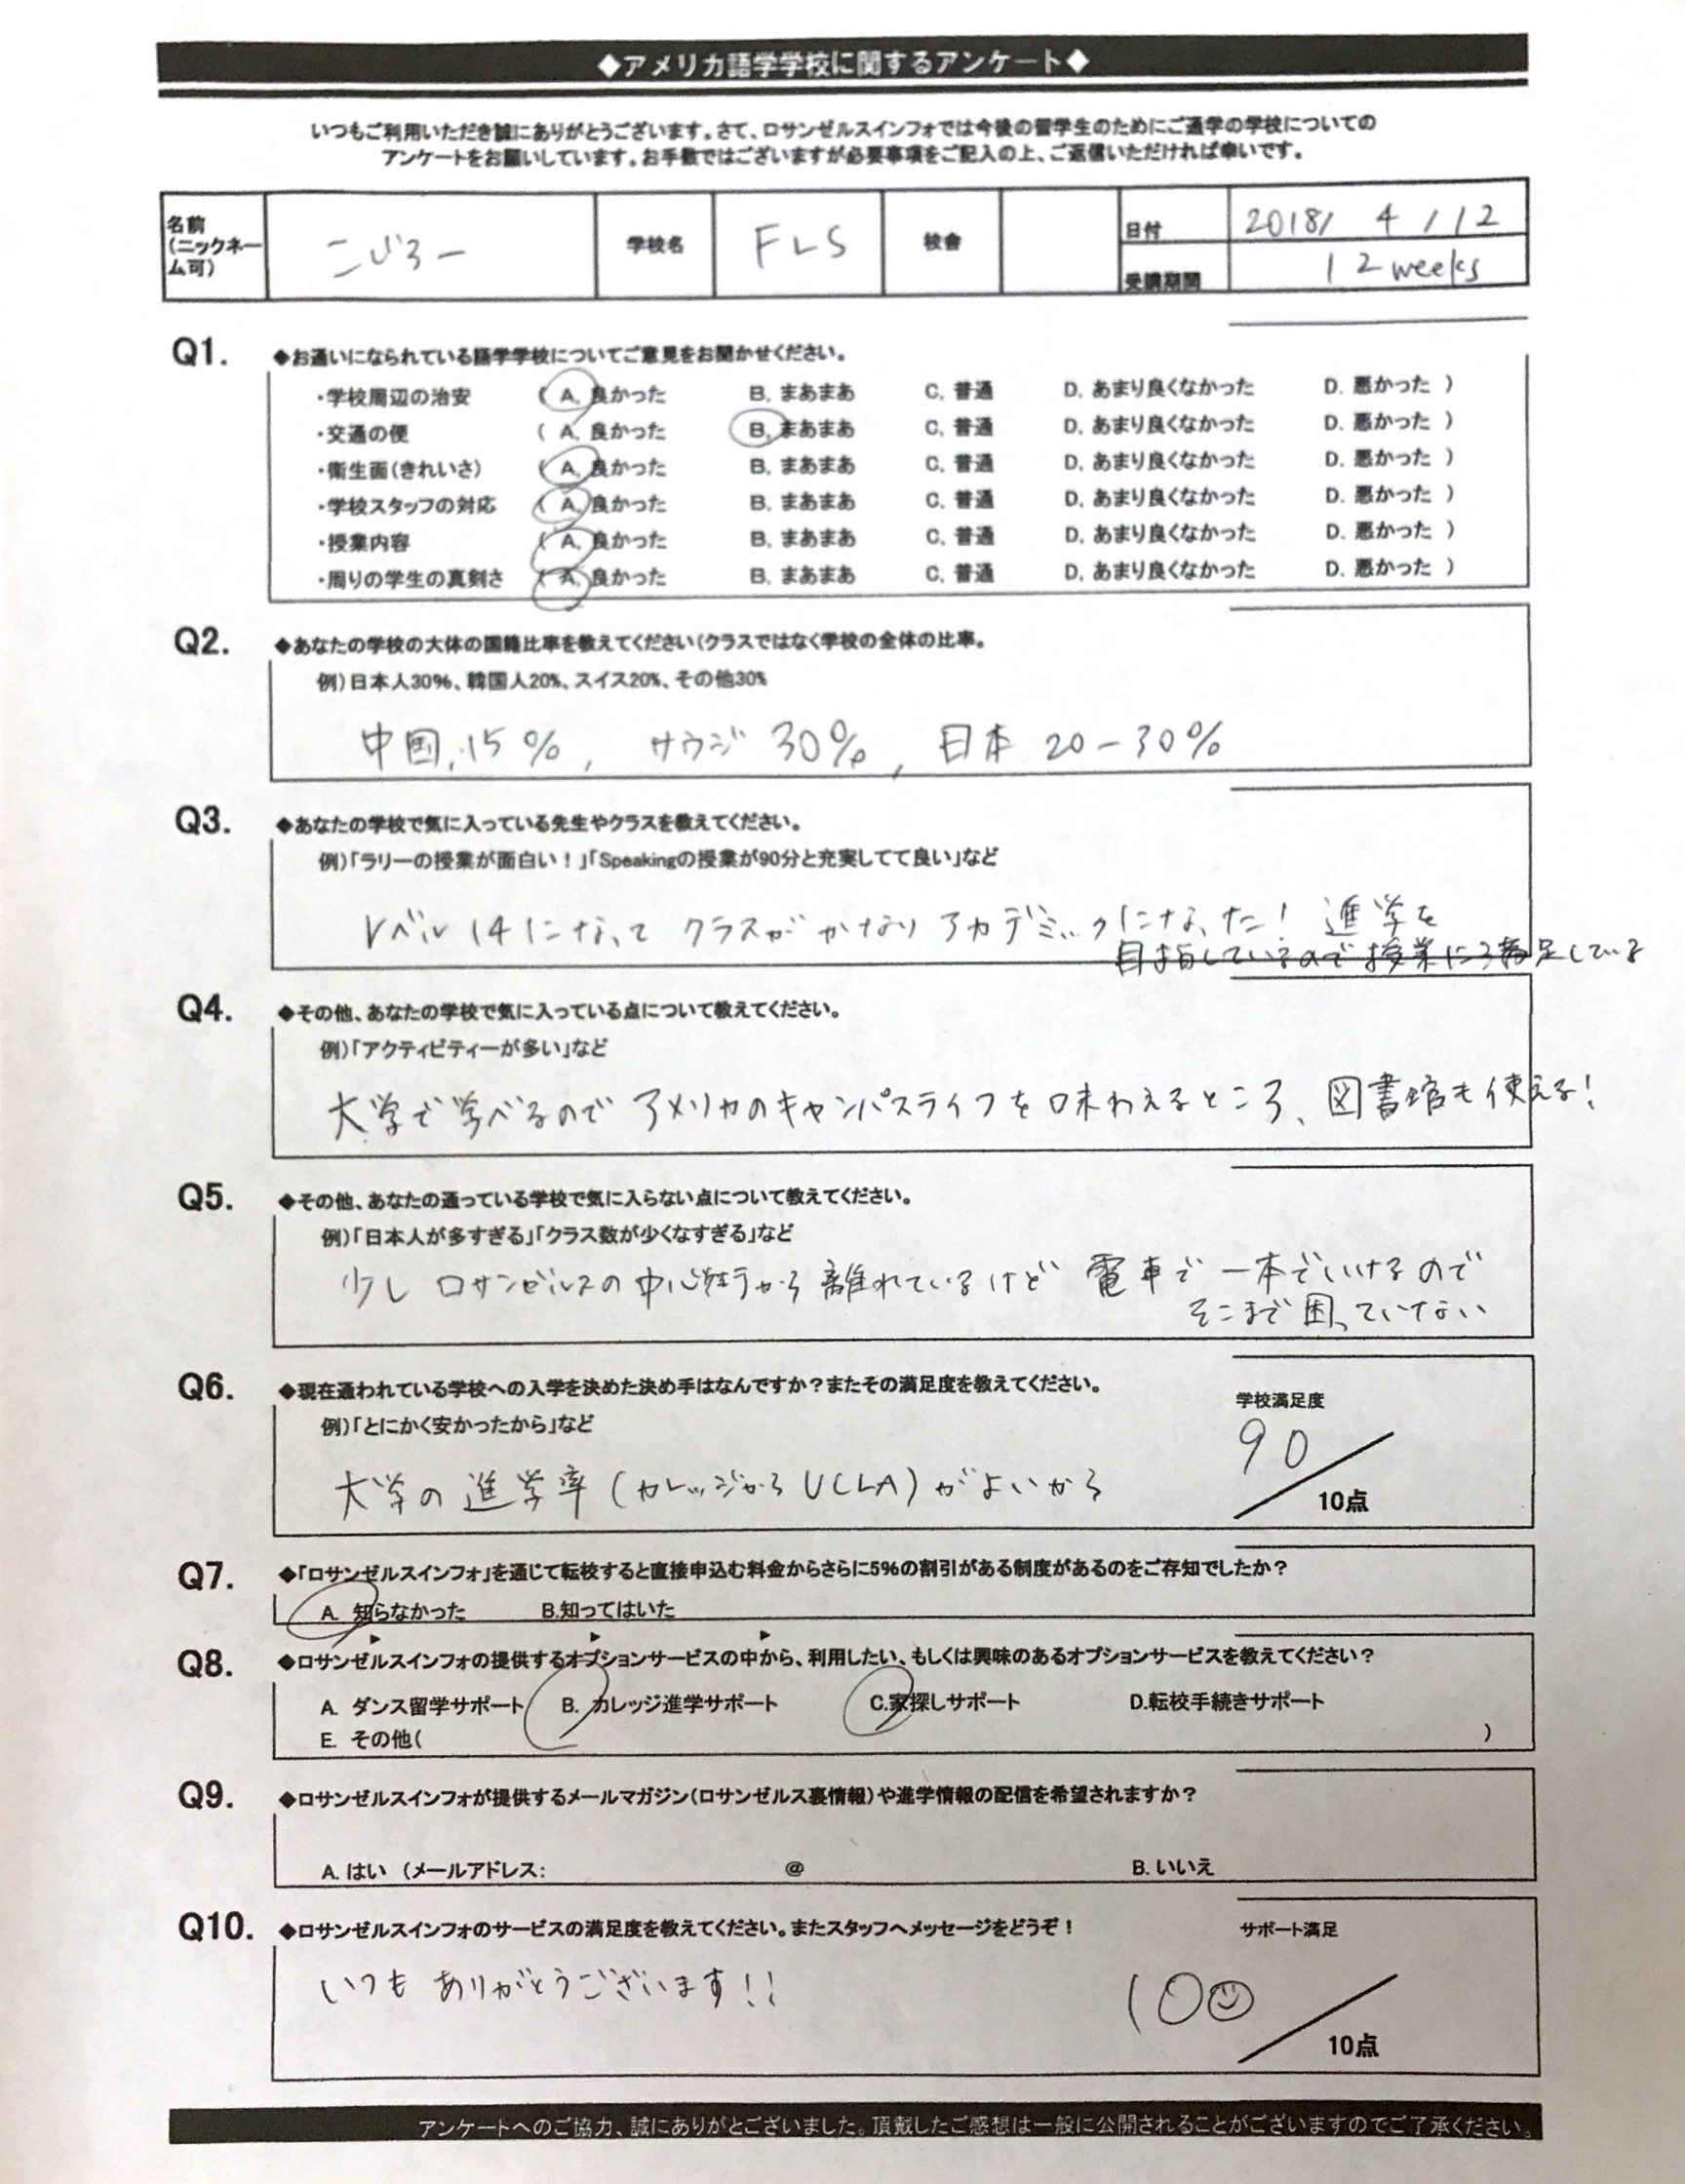 ◆アメリカ語学学校に関するアンケート◆
いつもご利用いただき誠にありがとうございます。さて、ロサンゼルスインフォでは今後の留学生のためにご通学の学校についての
アンケートをお願いしています。お手数ではございますが必要事項をご記入の上、ご返信いただければ幸いです。
名前(ニックネーム可) こじろー 学校名 FLS 校舎 日付 2018/ 4 / 12
受講期間 12 weeks
Q1. ◆お通いになられている語学学校についてご意見をお聞かせください。
・学校周辺の治安 ( A. 良かった B. まあまあ C. 普通 D. あまり良くなかった D. 悪かった )
・交通の便 ( A. 良かった B. まあまあ C. 普通 D. あまり良くなかった D. 悪かった )
・衛生面(きれいさ) ( A. 良かった B. まあまあ C. 普通 D. あまり良くなかった D. 悪かった )
・学校スタッフの対応 ( A. 良かった B. まあまあ C. 普通 D. あまり良くなかった D. 悪かった )
・授業内容 ( A. 良かった B. まあまあ C. 普通 D. あまり良くなかった D. 悪かった )
・周りの学生の真剣さ ( A. 良かった B. まあまあ C. 普通 D. あまり良くなかった D. 悪かった )
Q2. ◆あなたの学校の大体の国籍比率を教えてください(クラスではなく学校の全体の比率。
例)日本人30%、韓国人20%、スイス20%、その他30%
中国, 15%, サウジ 30%, 日本 20-30%
Q3. ◆あなたの学校で気に入っている先生やクラスを教えてください。
例)「ラリーの授業が面白い!」「Speakingの授業が90分と充実してて良い」など
レベル14になってクラスがかなりアカデミックになった! 進学を
目指しているので授業にも満足している
Q4. ◆その他、あなたの学校で気に入っている点について教えてください。
例)「アクティビティーが多い」など
大学で学べるのでアメリカのキャンパスライフを味わえるところ、図書館も使える!
Q5. ◆その他、あなたの通っている学校で気に入らない点について教えてください。
例)「日本人が多すぎる」「クラス数が少くなすぎる」など
少しロサンゼルスの中心街から離れているけど 電車で一本でいけるので
そこまで困っていない
Q6. ◆現在通われている学校への入学を決めた決め手はなんですか?またその満足度を教えてください。
学校満足度
例)「とにかく安かったから」など
90
大学の進学率(カレッジからUCLA)がよいから
10点
Q7. ◆「ロサンゼルスインフォ」を通じて転校すると直接申込む料金からさらに5%の割引がある制度があるのをご存知でしたか?
A. 知らなかった B.知ってはいた
Q8. ◆ロサンゼルスインフォの提供するオプションサービスの中から、利用したい、もしくは興味のあるオプションサービスを教えてください?
A. ダンス留学サポート B. カレッジ進学サポート C.家探しサポート D.転校手続きサポート
E. その他( )
Q9. ◆ロサンゼルスインフォが提供するメールマガジン(ロサンゼルス裏情報)や進学情報の配信を希望されますか?
A. はい (メールアドレス: @ B. いいえ
Q10. ◆ロサンゼルスインフォのサービスの満足度を教えてください。またスタッフへメッセージをどうぞ! サポート満足
いつもありがとうございます!! 100
10点
アンケートへのご協力、誠にありがとございました。頂戴したご感想は一般に公開されることがございますのでご了承ください。